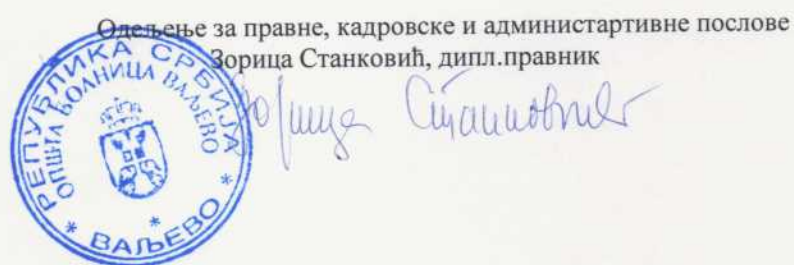 Одељење за правне, кадровске и администартивне послове
Зорица Станковић, дипл.правник
Зорица Станковић
РЕПУБЛИКА СРБИЈА
ОПШТА БОЛНИЦА ВАЉЕВО
* ВАЉЕВО *